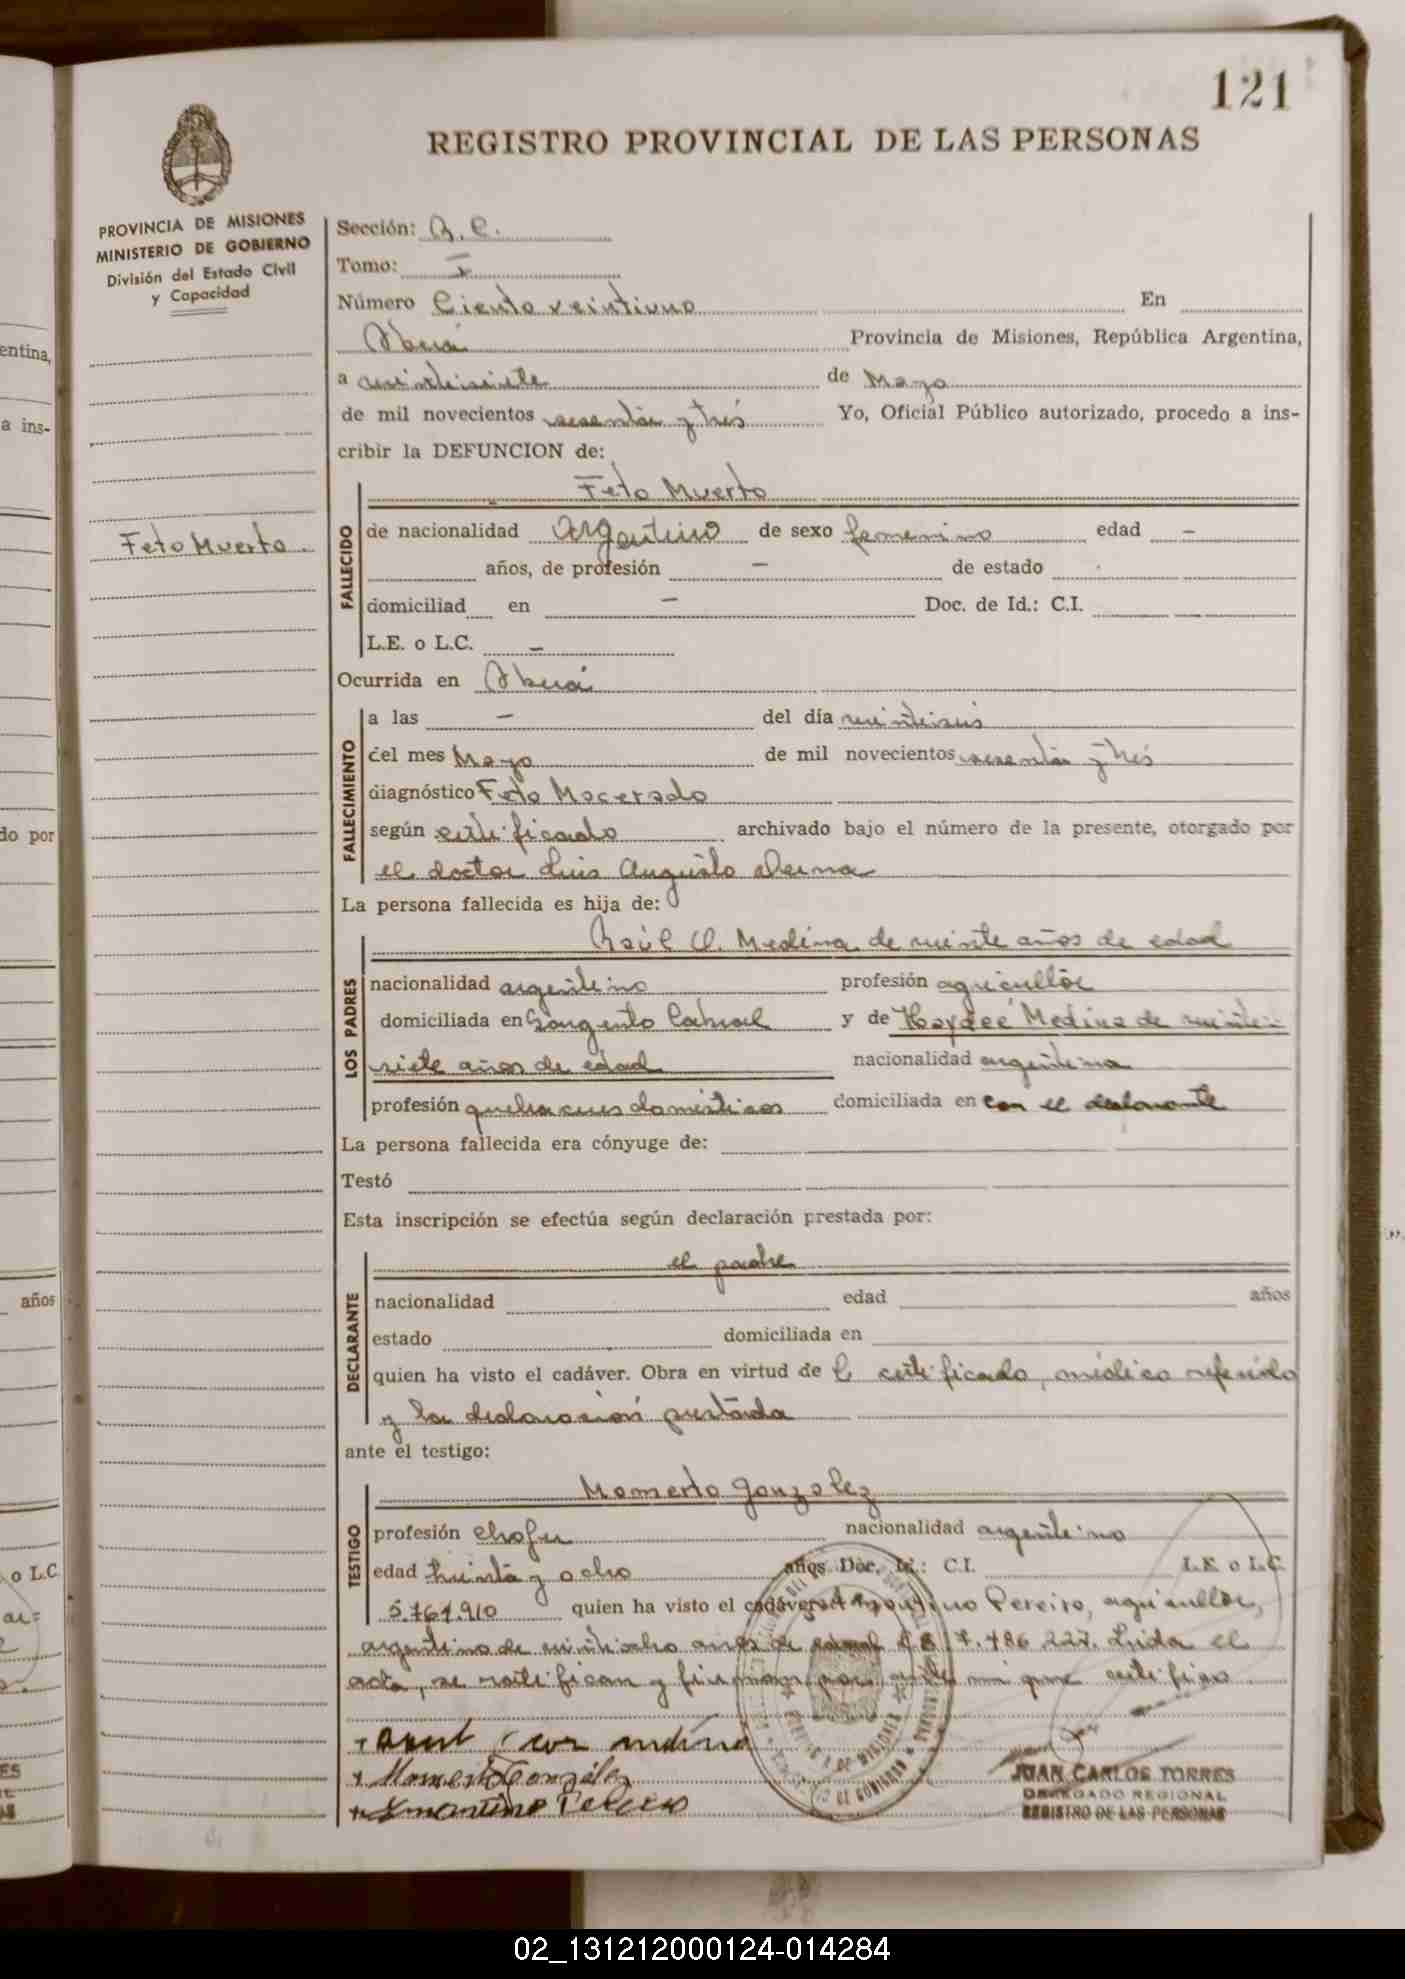 121
REGISTRO PROVINCIAL DE LAS PERSONAS
PROVINCIA DE MISIONES
MINISTERIO DE GOBIERNO
División del Estado Civil
y Capacidad
Feto Muerto.
Sección: B. C.
Tomo: I
Número Ciento veintiuno En
Oberá Provincia de Misiones, República Argentina,
a veintisiete de Mayo
de mil novecientos sesenta y trés Yo, Oficial Público autorizado, procedo a ins-
cribir la DEFUNCION de:
Feto Muerto
FALLECIDO
de nacionalidad Argentino de sexo femenino edad —
años, de profesión — de estado
domiciliad en — Doc. de Id.: C.I.
L.E. o L.C. —
Ocurrida en Oberá
FALLECIMIENTO
a las — del día veintiseis
del mes Mayo de mil novecientos sesenta y trés
diagnóstico Feto Macerado
según certificado archivado bajo el número de la presente, otorgado por
el doctor Luis Augusto
La persona fallecida es hija de:
LOS PADRES
Raúl O. Medina de veinte años de edad
nacionalidad argentino profesión agricultor
domiciliada en Sargento Cabral y de Haydeé Medina de veinti-
siete años de edad nacionalidad argentina
profesión quehaceres domésticos domiciliada en con el declarante
La persona fallecida era cónyuge de:
Testó
Esta inscripción se efectúa según declaración prestada por:
DECLARANTE
el padre
nacionalidad edad años
estado domiciliada en
quien ha visto el cadáver. Obra en virtud de el certificado, médico referido
y la declaración prestada
ante el testigo:
TESTIGO
Mamerto Gonzalez
profesión chofer nacionalidad argentino
edad treinta y ocho años Doc. Id.: C.I. L.E. o L.C.
5.767.910 quien ha visto el cadáver Pereiro, agricultor,
argentino de veintiocho años de edad 7.486.227. Leida el
acta, se ratifican y firman por ante mi que certifico
Mamerto González
JUAN CARLOS TORRES
DELEGADO REGIONAL
REGISTRO DE LAS PERSONAS
entina,
a ins-
do por
años
o L.C.
02_131212000124-014284